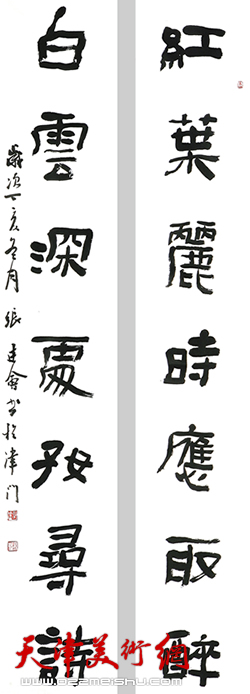 紅葉麗時應取醉
白雲深處好尋詩
歲次丁亥冬月張建會書於津門
天津美術網
www.022meishu.com